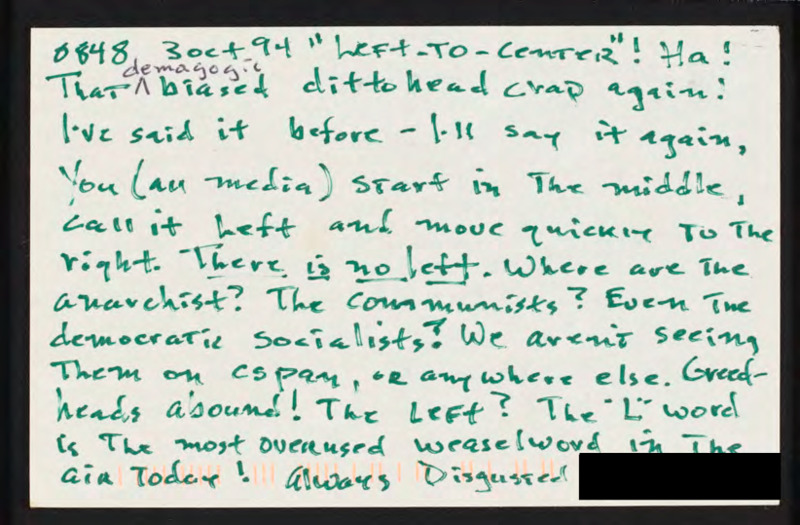 0848 3 oct 94 "Left-To-Center"! Ha!
demagogic
That ^ biased dittohead crap again!
I've said it before - I'll say it again,
You (all media) start in the middle,
call it left and move quickly to the
right. There is no left. Where are the
anarchist? The communists? Even the
democratic socialists? We aren't seeing
them on cspan, or anywhere else. Greed-
heads abound! The Left? The "L" word
is the most overused weaselword in the
air today! Always Disgusted